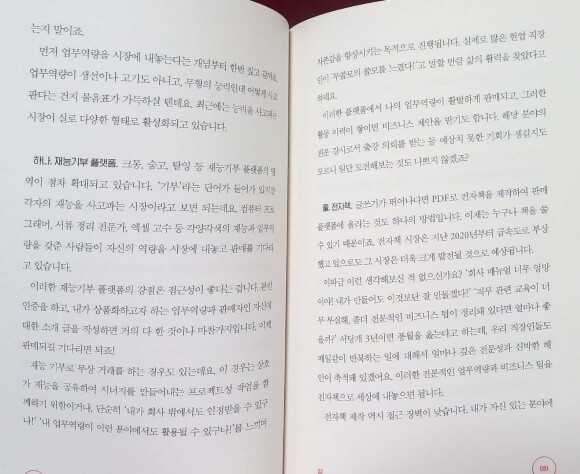 는지 말이죠.
먼저 업무역량을 시장에 내놓는다는 개념부터 한번 짚고 갈까요.
업무역량이 생선이나 고기도 아니고, 무형의 능력인데 어떻게 사고
판다는 건지 물음표가 가득하실 텐데요. 최근에는 능력을 사고파는
시장이 실로 다양한 형태로 활성화되고 있습니다.
하나, 재능기부 플랫폼. 크몽, 숨고, 탈잉 등 재능기부 플랫폼의 영
역이 점차 확대되고 있습니다. ‘기부’라는 단어가 들어가 있지만
각자의 재능을 사고파는 시장이라고 보면 되는데요. 컴퓨터 프로
그래머, 서류 정리 전문가, 엑셀 고수 등 각양각색의 재능과 업무역
량을 갖춘 사람들이 자신의 역량을 시장에 내놓고 판매를 기다리
고 있습니다.
이러한 재능기부 플랫폼의 강점은 접근성이 좋다는 겁니다. 본인
인증을 하고, 내가 상품화하고자 하는 업무역량과 판매자인 자신에
대한 소개 글을 작성하면 거의 다 한 것이나 마찬가지입니다. 이제
판매되길 기다리면 되죠!
재능 기부로 무상 거래를 하는 경우도 있는데요. 이 경우는 상호
가 재능을 공유하여 시너지를 만들어내는 프로젝트성 작업을 함
께하기 위함이거나, 단순히 ‘내가 회사 밖에서도 인정받을 수 있구
나!’ ‘내 업무역량이 이런 분야에서도 활용될 수 있구나!’를 느끼며
자존감을 향상시키는 목적으로 진행됩니다. 실제로 많은 현업 직장
인이 ‘무쓸모의 쓸모를 느꼈다!’고 말할 만큼 삶의 활력을 찾았다고
하네요.
이러한 플랫폼에서 나의 업무역량이 활발하게 판매되고, 그러한
활동 이력이 쌓이면 비즈니스 제안을 받기도 합니다. 해당 분야의
전문 강사로서 출강 의뢰를 받는 등 예상치 못한 기회가 생길지도
모르니 일단 도전해보는 것도 나쁘지 않겠죠?
둘, 전자책. 글쓰기가 뛰어나다면 PDF로 전자책을 제작하여 판매
플랫폼에 올리는 것도 하나의 방법입니다. 이제는 누구나 책을 쓸
수 있기 때문이죠. 전자책 시장은 지난 2020년부터 급속도로 부상
했고 앞으로도 그 시장은 더욱 크게 발전될 것으로 예상됩니다.
이따금 이런 생각해보신 적 없으신가요? ‘회사 매뉴얼 너무 엉망
이야! 내가 만들어도 이것보단 잘 만들겠다!’ ‘직무 관련 교육이 너
무 부실해. 좀더 전문적인 비즈니스 팁이 정리돼 있다면 얼마나 좋
을까?’ 서당개 3년이면 풍월을 읊는다고 하는데, 우리 직장인들도
매일같이 반복하는 일에 대해서 얼마나 깊은 전문성과 신박한 혜
안이 축적돼 있겠어요. 이러한 전문적인 업무역량과 비즈니스 팁을
전자책으로 세상에 내놓으면 됩니다.
전자책 제작 역시 접근 장벽이 낮습니다. 내가 자신 있는 분야에
081